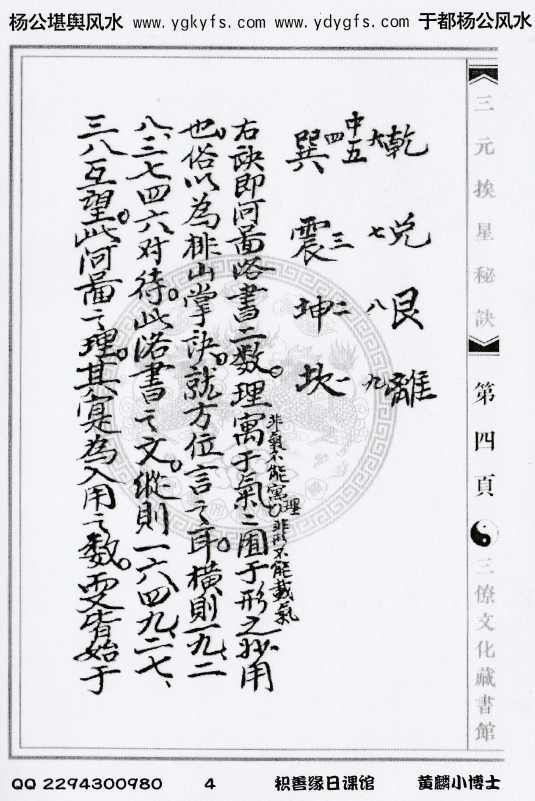 杨公堪舆风水 www.ygkyfs.com www.ydygfs.com 于都杨公风水
三元挨星秘訣
第四頁
三僚文化藏書館
乾 兑 艮 離
六 七 八 九
中五
四 三 二 一
巽 震 坤 坎
右訣即河啚洛書二数。理寓于氣氣囿于形之妙用
非氣不能寓理
非形不能載氣
也。俗以為排山掌訣。就方位言之耳。橫則一九、二
八、三七四六对待。此洛書之文。縱則一六四九、二七、
三八互望。此河啚之理。其寔為入用之数。要皆始于
QQ 2294300980 4 积善缘日课馆 黄麟小博士